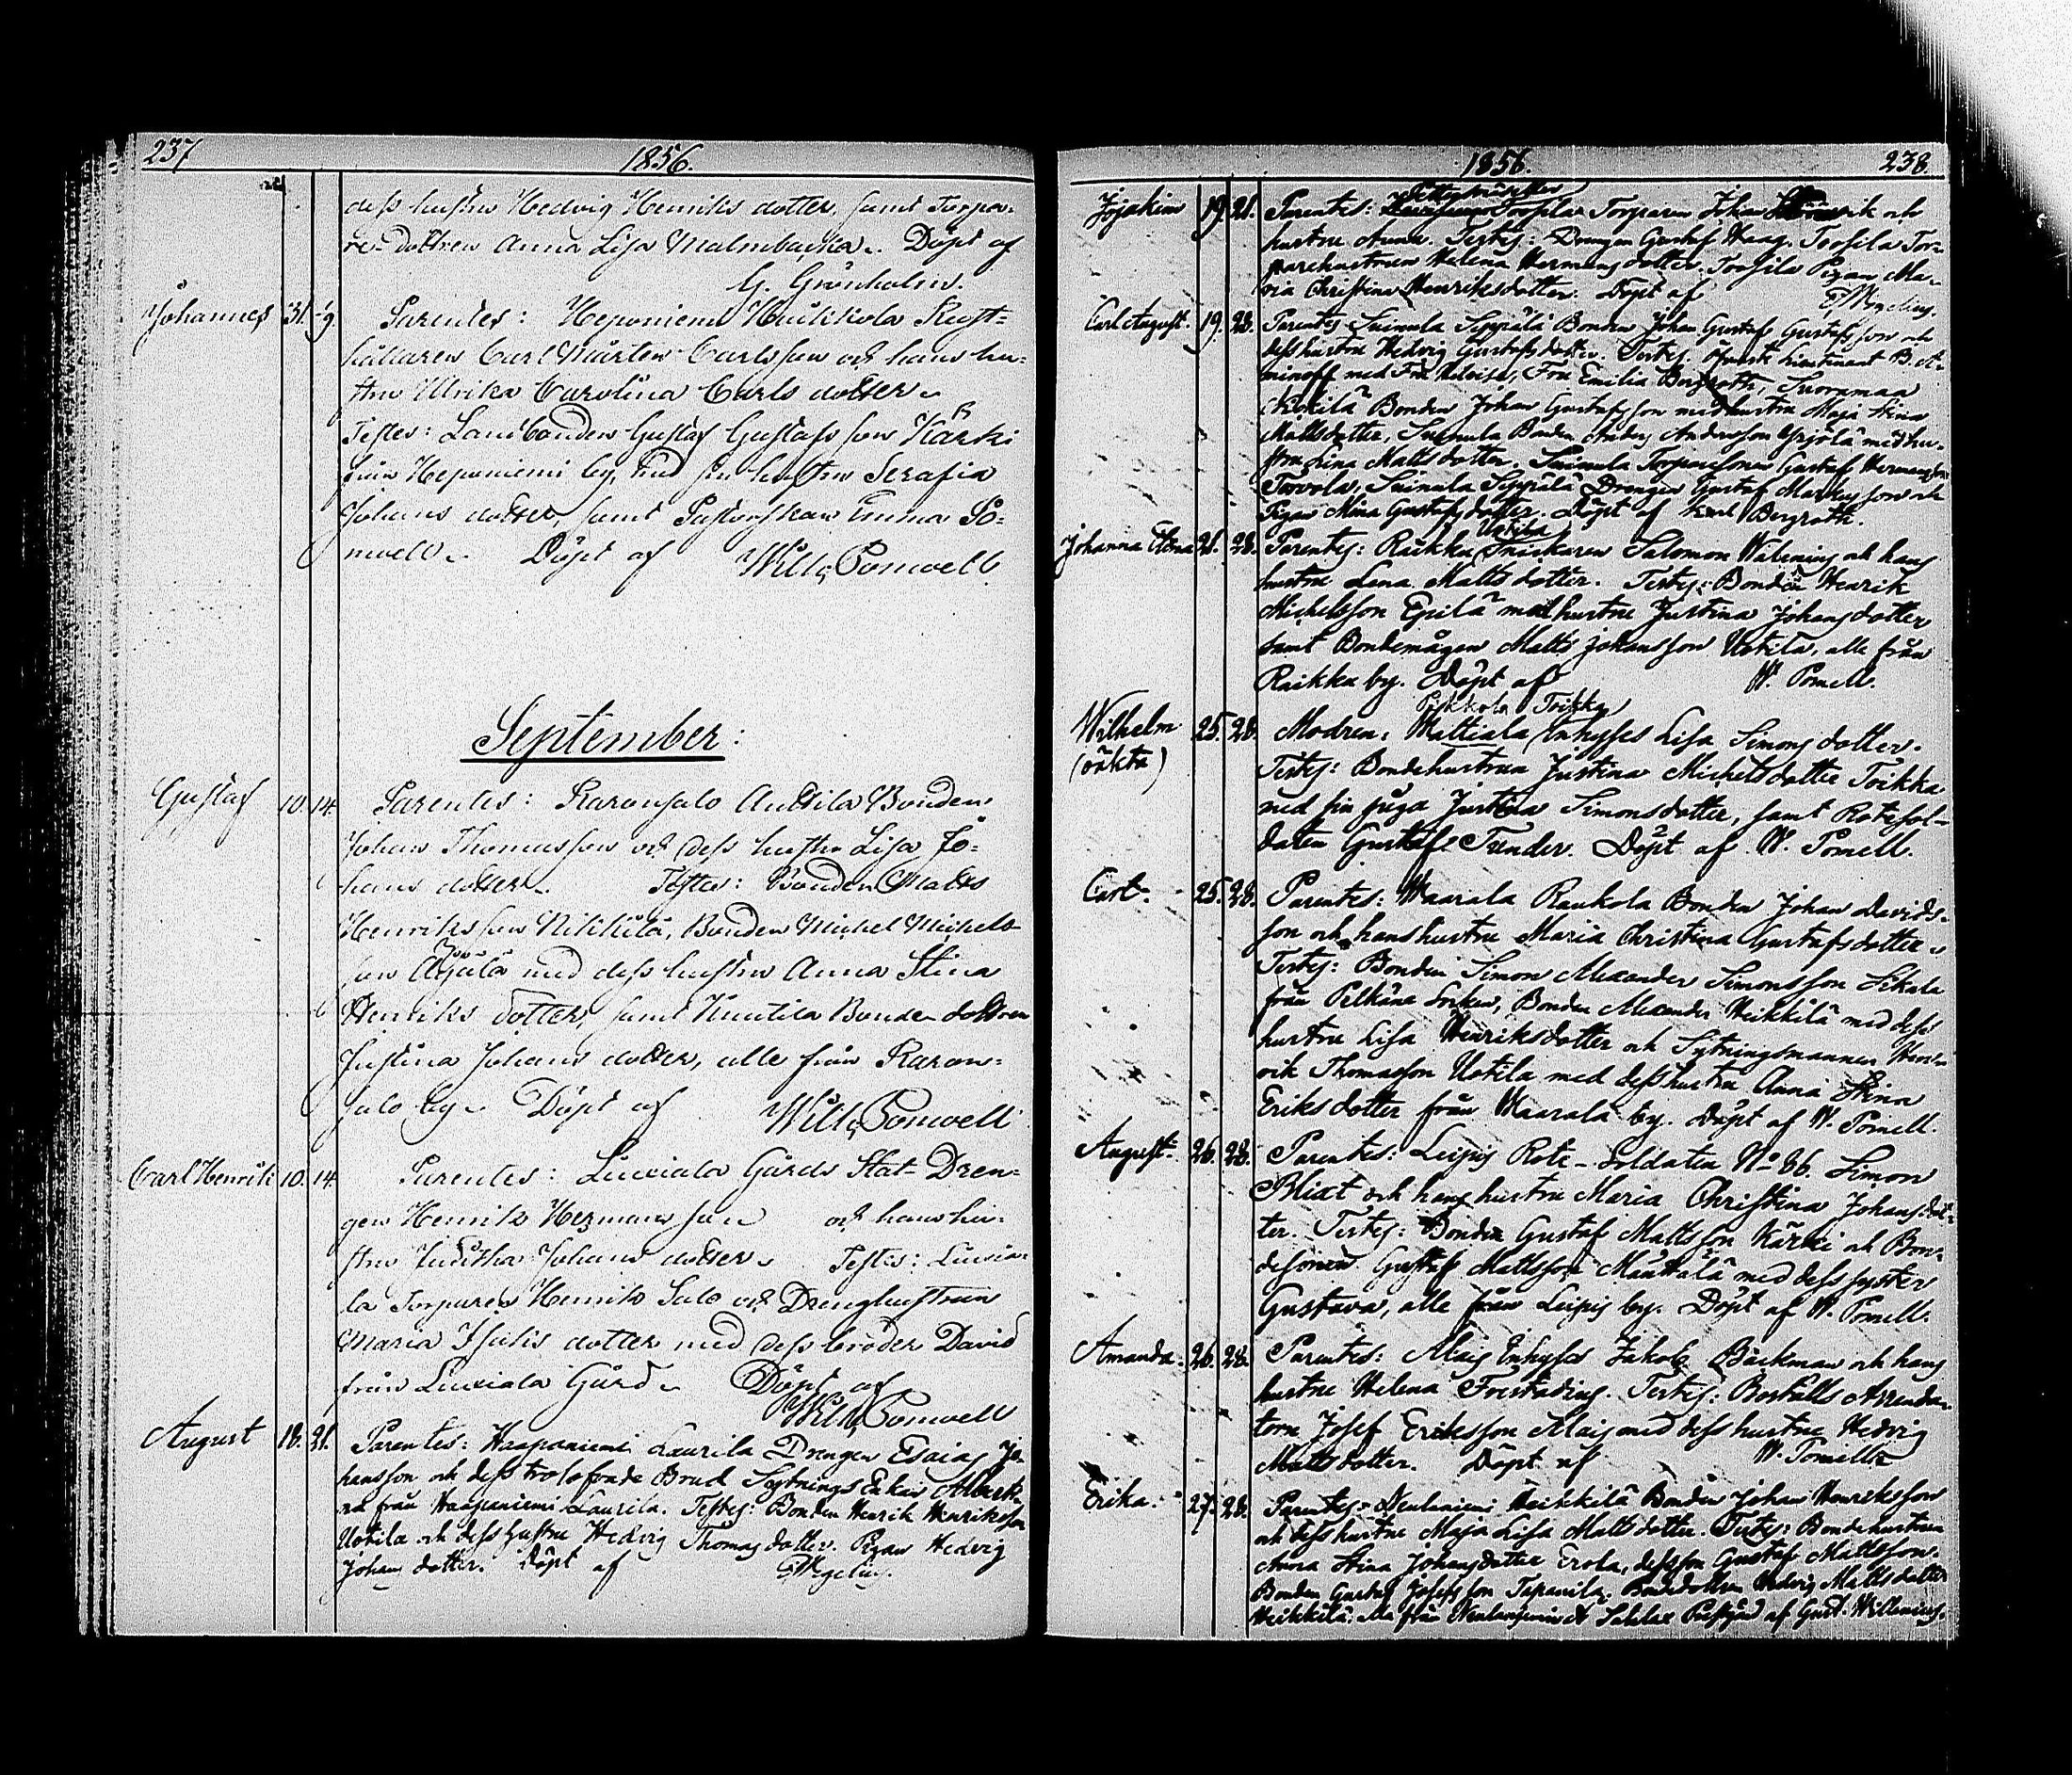 237
1856.
dess hustru Hedvig Henriks dotter, samt Torpa-
re dottren Anna Lisa Malmbacka. Döpt af
G. Grönholm.
Johannes 31. 9. Parentes: Heponiemi Huikkola Rust-
hållaren Carl Mårten Carlsson och hans hu-
stru Ulrika Carolina Carls dotter.
Testes: Landbonden Gustaf Gustafs son Kärki
från Heponiemi by, med sin hustru Serafia
Johans dotter, samt Pastorskan Emma Po-
nvell. Döpt af Wilh. Ponvell.
September:
Gustaf 10. 14. Parentes: Raronsalo Anttila Bonden
Johan Thomasson och dess hustru Lisa Jo-
hans dotter. Testes: Bonden Matts
Henriks son Nikkilä, Bonden Michel Michels
son med dess hustru Anna Stina
Henriks dotter, samt Knutila Bonde dottren
Justina Johans dotter, alle från Raron-
salo by. Döpt af Wilh. Ponvell
Carl Henrik 10. 14. Parentes: Liuxiala Gårds Stat-Dren-
gen Henrik Hermans son och hans hu-
stru Juditha Johans dotter. Testes: Liuxia-
la Torparen Henrik Salo och Dränghustrun
Maria Isaks dotter med dess broder David
från Liuxiala Gård. Döpt af
Wilh. Ponvell
August 18. 21. Parentes: Haapaniemi Laurila Drengen Esaias Jo-
hansson och dess trolofvade Brud Sytnings Enkan
från Haapaniemi Laurila. Testes: Bonden Henrik Henriksson
Uotila och dess hustru Hedvig Thomas dotter. Pigan Hedvig
Johans dotter. Döpt af Wegelius.
1856.
238
Jojakim 19. 21. Parentes: Torsila Torparen Johan och
hustru Anna. Testes: Drengen Gustaf Haag, Torsila Tor-
parehustrun Helena Hermans dotter. Torsila Pigan Ma-
ria Christina Henriksdotter. Döpt af Wegelius.
Carl August. 19. 28. Parentes Suinula Seppälä Bonden Johan Gustaf Gustafsson och
dess hustru Hedvig Gustafsdotter. Testes. Öfverste Lieutenant B. A-
minoff med Fru Fru Emilia Bergroth, Suoramaa
Bonden Johan Gustafsson med hustru Maja Stina
Mattsdotter, Suinula Bonden Anders Andersson Yrjölä med hu-
stru Lina Matts dotter, Suinula Torparesonen Gustaf Hermansson
Torvola, Suinula Seppälä Drengen Gustaf Markusson och
Pigan Mina Gustafsdotter. Döpt af Bergroth.
Uotila
Johanna Elena 21. 28. Parentes: Raikku Snickaren Salomon Walenius och hans
hustru Lena Matts dotter. Testes: Bonden Henrik
Michelsson Eerilä med hustru Justina Johans dotter
samt Bondemågen Matts Johansson Uotila, alle från
Raikku by. Döpt af W. Ponvell.
Pekkola Toikka
Wilhelm 25. 28. Modren: Mattiala Inhyses Lisa Simons dotter.
(oäkta) Testes: Bondehustrun Justina Michelsdotter Toikka
med sin piga Justina Simonsdotter, samt Rotesol-
daten Gustaf Tunder. Döpt af W. Ponvell.
Carl. 25. 28. Parentes: Haarala Raukola Bonden Johan Davids-
son och hans hustru Maria Christina Gustafsdotter.
Testes: Bonden Simon Alexander Simonsson
från Pelkäne Socken, Bonden Alexander Heikkilä med dess
hustru Lisa Henriksdotter och Sytningsmannen Hen-
rik Thomasson Uotila med dess hustru Anna Stina
Eriksdotter från Haarala by. Döpt af W. Ponvell.
August 26. 28. Parentes: Leipis Rote-Soldaten No 86. Simon
Blixt och hans hustru Maria Christina Johans dot-
ter. Testes: Bonden Gustaf Mattsson Kärki och Bon-
desonen Gustaf Mattsson Mäntälä med dess syster
Gustava, alle från Leipis by. Döpt af W. Ponvell.
Amanda. 26. 28. Parentes: Alais Inhyses Jakob Bäckman och hans
hustru Helena Forstadius. Testes: Boställs Arrenda-
torn Josef Eriksson Alais med dess hustru Hedvig
Matts dotter. Döpt af W. Ponvell
Erika. 27. 28. Parentes: Neulaniemi Heikkilä Bonden Johan Henriksson
och dess hustru Maja Lisa Matts dotter. Testes: Bondehustrun
Anna Stina Johans dotter Erola, dess son Gustaf Mattsson.
Bonden Gustaf Josefsson Tapanila. Bondedottren Hedvig Matts dotter
Heikkilä. Alla från Neulaniemi af Gust. Willenius.